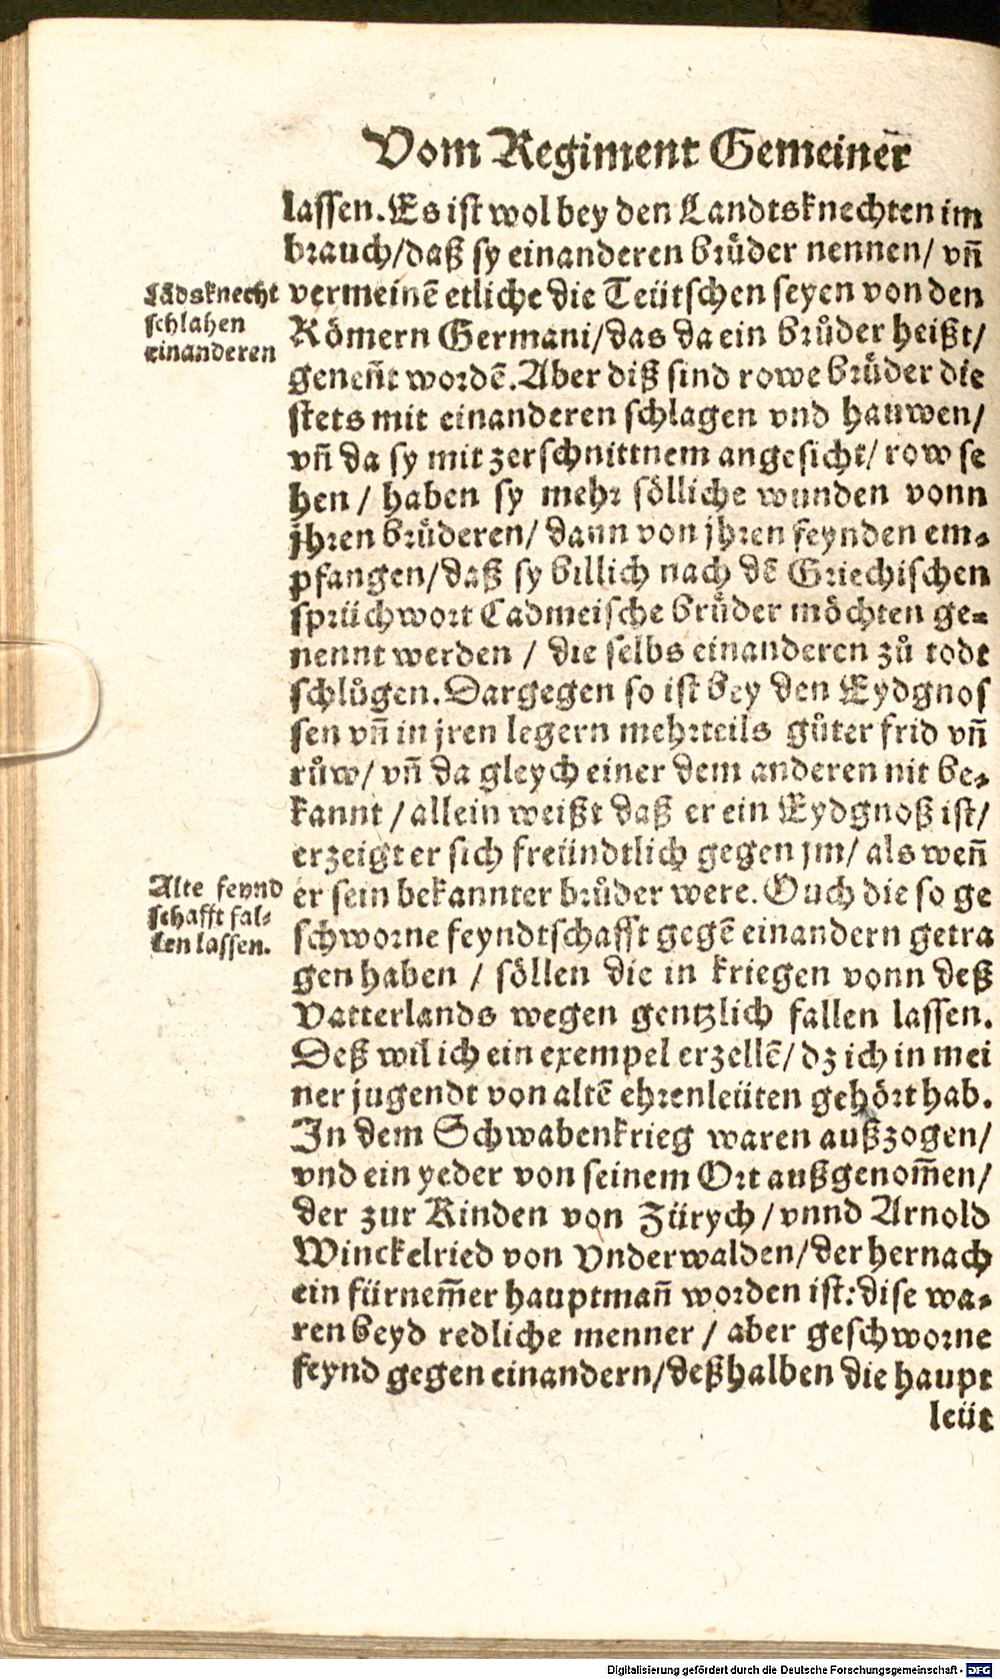 Vom Regiment Gemeiner̄
lassen. Es ist wol bey den Landtsknechten im
brauch/ daß sy einanderen brůder nennen/ vn̄
Lādsknecht
schlahen
einanderen
vermeinē etliche die Teütschen seyen von den
Römern Germani/ das da ein brůder heißt/
genen̄t wordē. Aber diß sind rowe brůder die
stets mit einanderen schlagen vnd hauwen/
vn̄ da sy mit zerschnittnem angesicht/ row se
hen / haben sy mehr sölliche wunden vonn
jhren brůderen/ dann von jhren feynden em-
pfangen/ daß sy billich nach dē Griechischen
sprüchwort Cadmeische brůder möchten ge-
nennt werden / die selbs einanderen zů todt
schlůgen. Dargegen so ist bey den Eydgnos
sen vn̄ in jren legern mehrteils gůter frid vn̄
růw/ vn̄ da gleych einer dem anderen nit be-
kannt / allein weißt daß er ein Eydgnoß ist/
erzeigt er sich freündtlich gegen jm/ als wen̄
Alte feynd
schafft fal-
len lassen.
er sein bekannter brůder were. Ouch die so ge
schworne feyndtschafft gegē einandern getra
gen haben / söllen die in kriegen vonn deß
Vatterlands wegen gentzlich fallen lassen.
Deß wil ich ein exempel erzellē/ dz ich in mei
ner jugendt von altē ehrenleüten gehört hab.
In dem Schwabenkrieg waren außzogen/
vnd ein yeder von seinem Ort außgenom̄en/
der zur Kinden von Zürych / vnnd Arnold
Winckelried von Vnderwalden/ der hernach
ein fürnem̄er hauptman̄ worden ist: dise wa-
ren beyd redliche menner / aber geschworne
feynd gegen einandern/ deßhalben die haupt
leüt
Digitalisierung gefördert durch die Deutsche Forschungsgemeinschaft - DFG